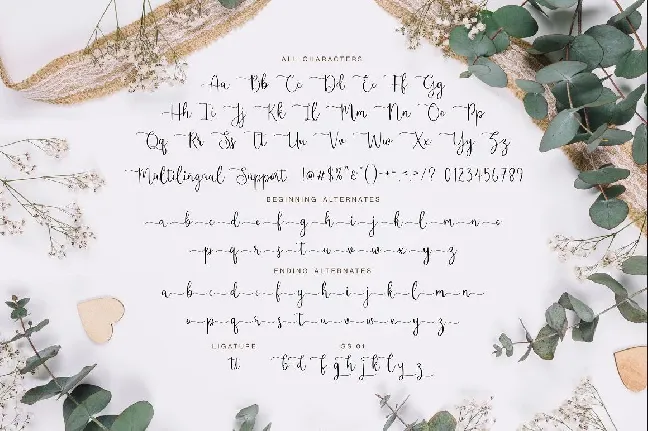 ALL CHARACTERS
Aa Bb Cc Dd Ee Ff Gg
Hh Ii Jj Kk Ll Mm Nn Oo Pp
Qq Rr Ss Tt Uu Vv Ww Xx Yy Zz
Multilingual Support !@#$%^&*()-+-.<.>/? 0123456789
BEGINNING ALTERNATES
a b c d e f g h i j k l m n o
p q r s t u v w x y z
ENDING ALTERNATES
a b c d e f g h i j k l m n
o p q r s t u v w x y z
LIGATURE SS 01
tt b d f g h j k l y z